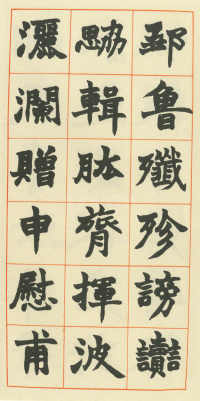 魯殲殄謗讟
勰輯肱膂揮波
灑瀾贈申慰甫